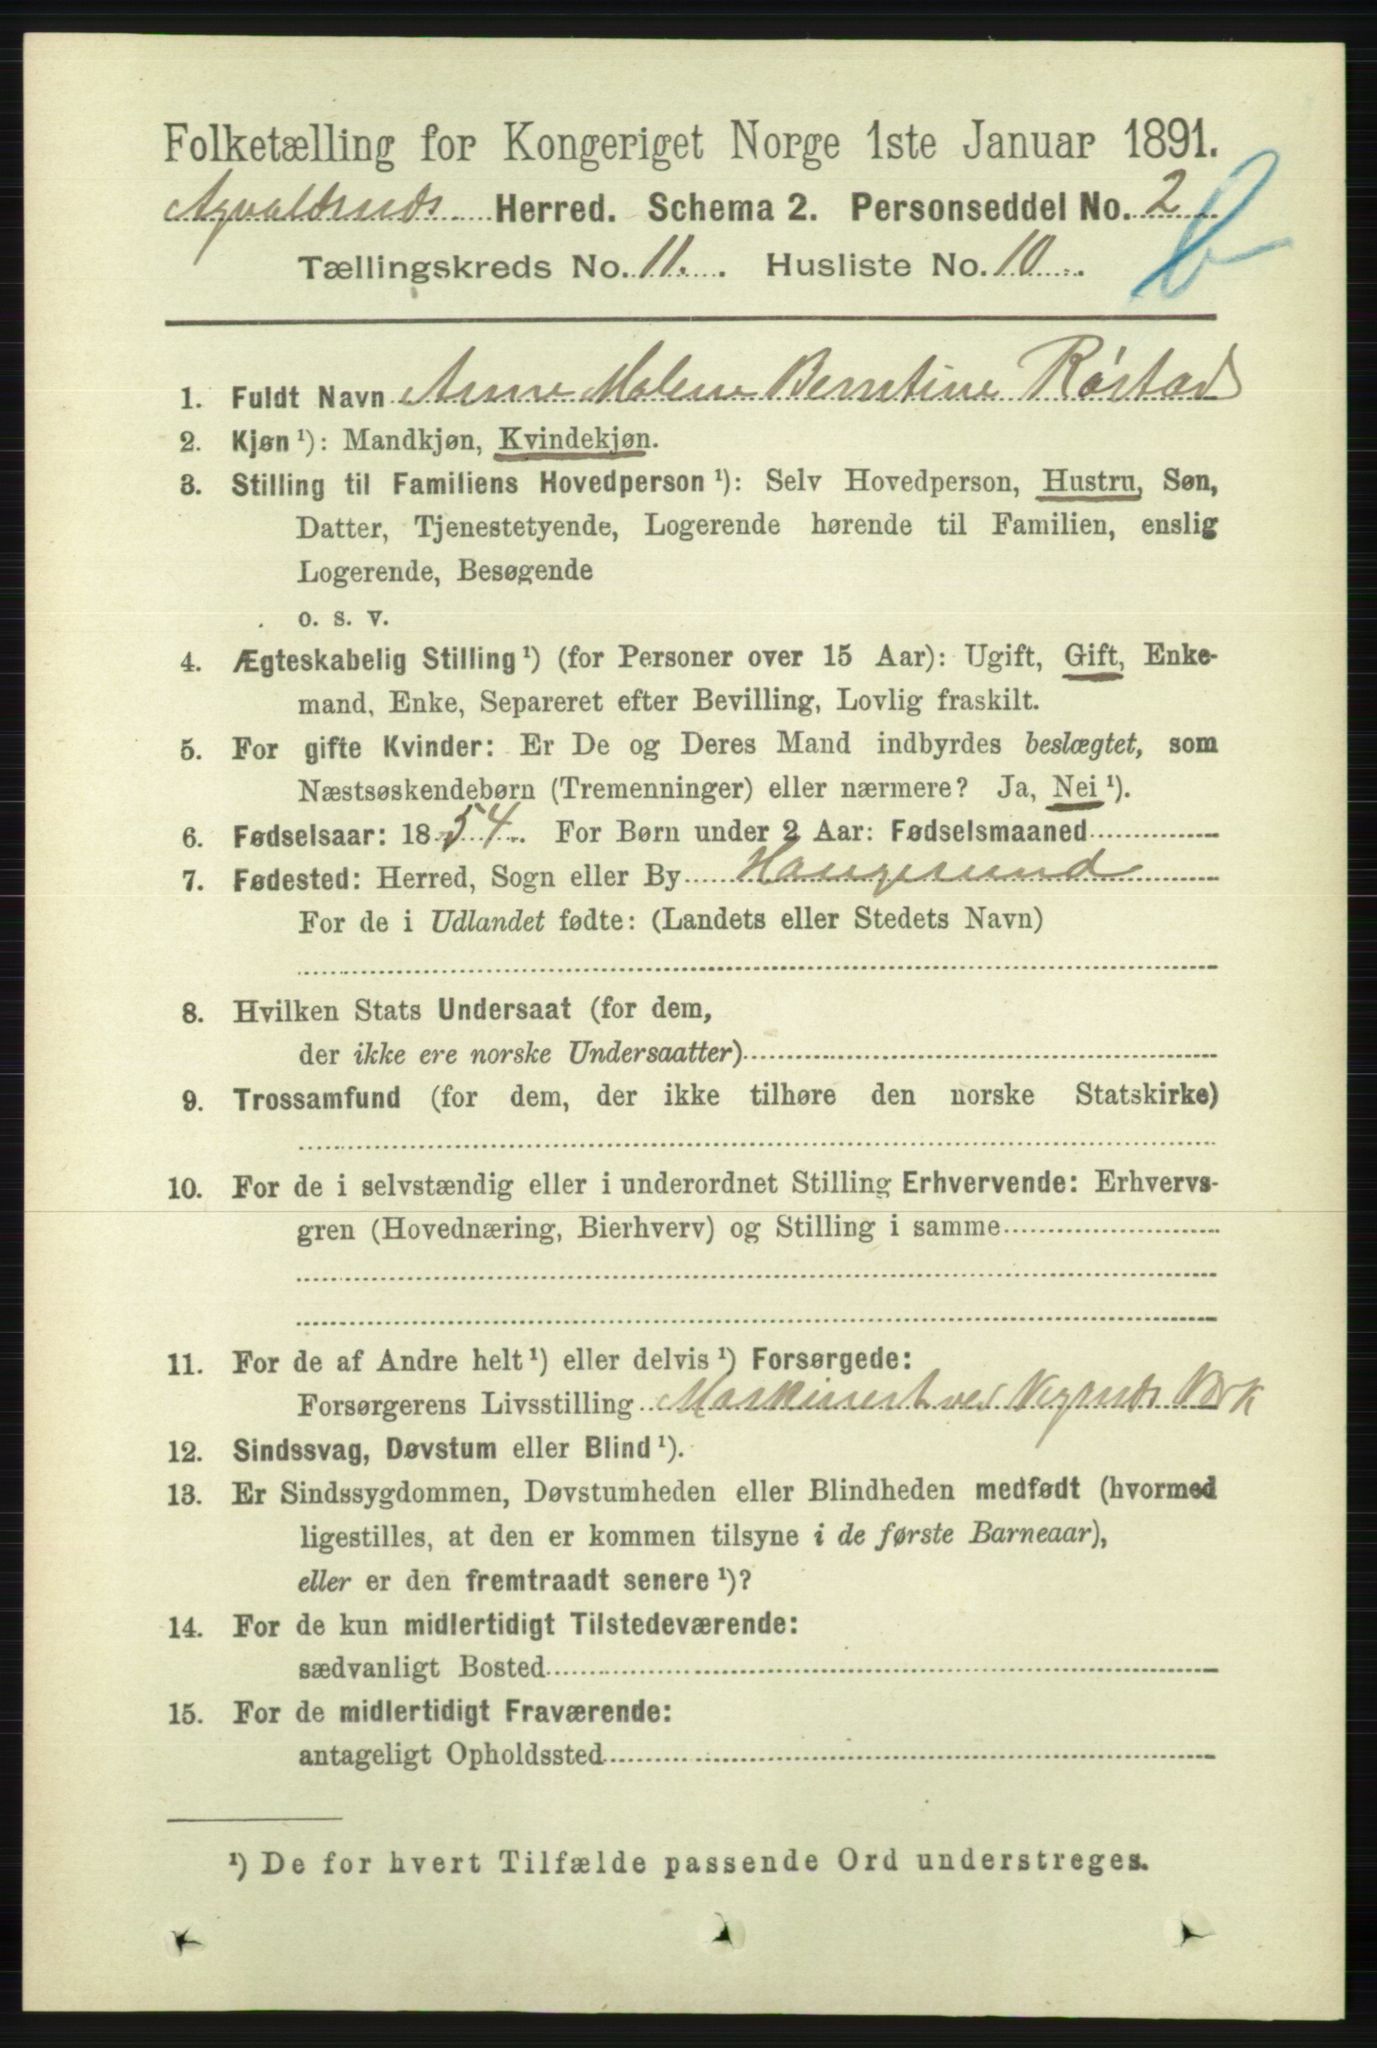 Folketælling for Kongeriget Norge 1ste Januar 1891.
Agvaldsnds Herred. Schema 2. Personseddel No. 2
Tællingskreds No. 11. Husliste No. 10
1. Fuldt Navn Anne Malene Berntine Röstad
2. Kjøn ¹): Mandkjøn, Kvindekjøn.
3. Stilling til Familiens Hovedperson ¹): Selv Hovedperson, Hustru, Søn,
Datter, Tjenestetyende, Logerende hørende til Familien, enslig
Logerende, Besøgende
o. s. v.
4. Ægteskabelig Stilling ¹) (for Personer over 15 Aar): Ugift, Gift, Enke-
mand, Enke, Separeret efter Bevilling, Lovlig fraskilt.
5. For gifte Kvinder: Er De og Deres Mand indbyrdes beslægtet, som
Næstsøskendebørn (Tremenninger) eller nærmere? Ja, Nei ¹).
6. Fødselsaar: 1854. For Børn under 2 Aar: Fødselsmaaned
7. Fødested: Herred, Sogn eller By Haugesund
For de i Udlandet fødte: (Landets eller Stedets Navn)
8. Hvilken Stats Undersaat (for dem,
der ikke ere norske Undersaatter)
9. Trossamfund (for dem, der ikke tilhøre den norske Statskirke)
10. For de i selvstændig eller i underordnet Stilling Erhvervende: Erhvervs-
gren (Hovednæring, Bierhverv) og Stilling i samme
11. For de af Andre helt ¹) eller delvis ¹) Forsørgede:
Forsørgerens Livsstilling Maskinest ved Vigsnds Vrk
12. Sindssvag, Døvstum eller Blind ¹).
13. Er Sindssygdommen, Døvstumheden eller Blindheden medfødt (hvormed
ligestilles, at den er kommen tilsyne i de første Barneaar),
eller er den fremtraadt senere ¹)?
14. For de kun midlertidigt Tilstedeværende:
sædvanligt Bosted
15. For de midlertidigt Fraværende:
antageligt Opholdssted
¹) De for hvert Tilfælde passende Ord understreges.